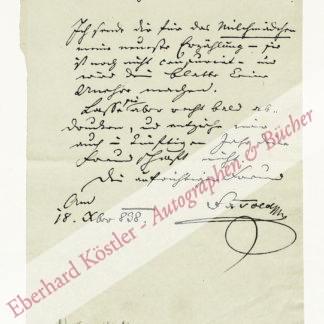 Ich sende dir für das Milchmädchen
meine neueste Erzählung – sie
ist noch nicht censurirt – und
wird dein Blatte keine
Unehre machen.
Lasse sie aber recht bald ab-
drucken, und entziehe mir
auch in künftigen Jahre
Freundschaft nicht
Dein aufrichtiger Freund
18. Xber 838.
Eberhard Köstler - Autographen & Bücher